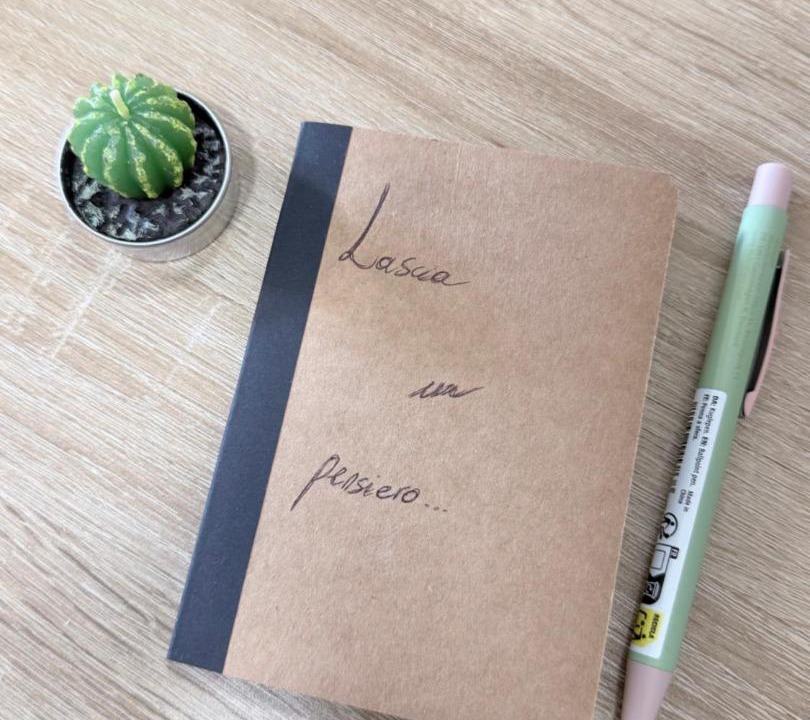 Lascia
un
pensiero...
DA: Kuglepen. EN: Ballpoint pen. Made in
China